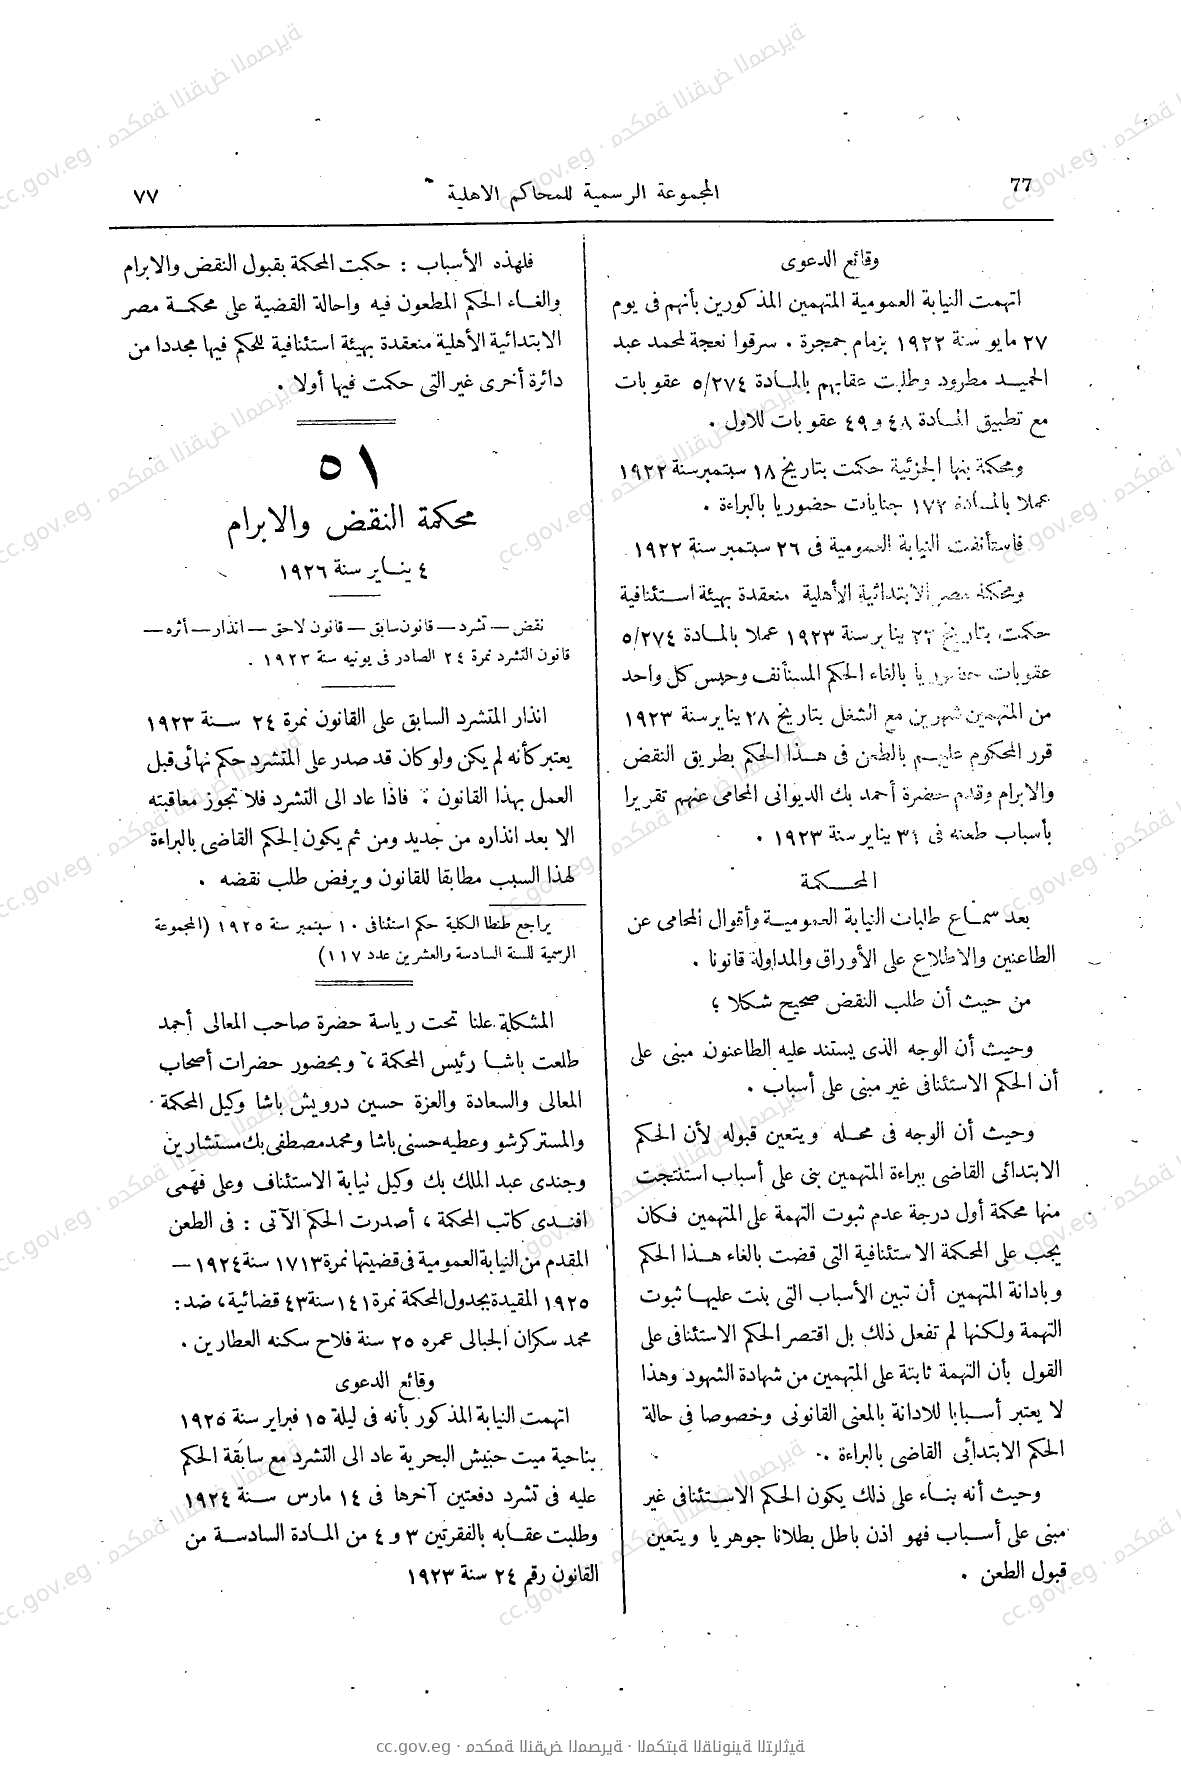 77
المجموعة الرسمية للمحاكم الاهلية
٧٧
وقائع الدعوى
اتهمت النيابة العمومية المتهمين المذكورين بأنهم فى يوم
٢٧ مايو سنة ١٩٢٢ بزمام جمجرة . سرقوا نعجة لمحمد عبد
الحميد مطرود وطلبت عقابهم بالمادة ٥/٢٧٤ عقوبات
مع تطبيق المادة ٤٨ و ٤٩ عقوبات للاول .
ومحكمة بنها الجزئية حكمت بتاريخ ١٨ سبتمبر سنة ١٩٢٢
عملا بالمادة ١٧٢ جنايات حضوريا بالبراءة .
فاستأنفت النيابة العمومية فى ٢٦ سبتمبر سنة ١٩٢٢
ومحكمة مصر الابتدائية الأهلية منعقدة بهيئة استئنافية
حكمت بتاريخ ٢٢ يناير سنة ١٩٢٣ عملا بالمادة ٥/٢٧٤
عقوبات حضوريا بالغاء الحكم المستأنف وحبس كل واحد
من المتهمين شهرين مع الشغل بتاريخ ٢٨ يناير سنة ١٩٢٣
قرر المحكوم عليهم بالطعن فى هذا الحكم بطريق النقض
والابرام وقدم حضرة أحمد بك الديوانى المحامى عنهم تقريرا
بأسباب طعنه فى ٣١ يناير سنة ١٩٢٣ .
المحكمة
بعد سماع طلبات النيابة العمومية وأقوال المحامى عن
الطاعنين والاطلاع على الأوراق والمداولة قانونا .
من حيث أن طلب النقض صحيح شكلا ؛
وحيث أن الوجه الذى يستند عليه الطاعنون مبنى على
أن الحكم الاستئنافى غير مبنى على أسباب .
وحيث أن الوجه فى محله ويتعين قبوله لأن الحكم
الابتدائى القاضى ببراءة المتهمين بنى على أسباب استنتجت
منها محكمة أول درجة عدم ثبوت التهمة على المتهمين فكان
يجب على المحكمة الاستئنافية التى قضت بالغاء هذا الحكم
وبادانة المتهمين أن تبين الأسباب التى بنت عليها ثبوت
التهمة ولكنها لم تفعل ذلك بل اقتصر الحكم الاستئنافى على
القول بأن التهمة ثابتة على المتهمين من شهادة الشهود وهذا
لا يعتبر أسبابا للادانة بالمعنى القانونى وخصوصا فى حالة
الحكم الابتدائى القاضى بالبراءة .
وحيث أنه بناء على ذلك يكون الحكم الاستئنافى غير
مبنى على أسباب فهو اذن باطل بطلانا جوهريا ويتعين
قبول الطعن .
فلهذه الأسباب : حكمت المحكمة بقبول النقض والابرام
والغاء الحكم المطعون فيه واحالة القضية على محكمة مصر
الابتدائية الأهلية منعقدة بهيئة استئنافية للحكم فيها مجددا من
دائرة أخرى غير التى حكمت فيها أولا .
٥١
محكمة النقض والابرام
٤ يناير سنة ١٩٢٦
نقض — تشرد — قانون سابق — قانون لاحق — انذار — أثره —
قانون التشرد نمرة ٢٤ الصادر فى يونيه سنة ١٩٢٣ .
انذار المتشرد السابق على القانون نمرة ٢٤ سنة ١٩٢٣
يعتبر كأنه لم يكن ولو كان قد صدر على المتشرد حكم نهائى قبل
العمل بهذا القانون . فاذا عاد الى التشرد فلا تجوز معاقبته
الا بعد انذاره من جديد ومن ثم يكون الحكم القاضى بالبراءة
لهذا السبب مطابقا للقانون ويرفض طلب نقضه .
يراجع طنطا الكلية حكم استئنافى ١٠ سبتمبر سنة ١٩٢٥ (المجموعة
الرسمية للسنة السادسة والعشرين عدد ١١٧)
المشكلة علنا تحت رياسة حضرة صاحب المعالى أحمد
طلعت باشا رئيس المحكمة ، وبحضور حضرات أصحاب
المعالى والسعادة والعزة حسين درويش باشا وكيل المحكمة
والمستر كرشو وعطيه حسنى باشا ومحمد مصطفى بك مستشارين
وجندى عبد الملك بك وكيل نيابة الاستئناف وعلى فهمى
افندى كاتب المحكمة ، أصدرت الحكم الآتى : فى الطعن
المقدم من النيابة العمومية فى قضيتها نمرة ١٧١٣ سنة ١٩٢٤ —
١٩٢٥ المقيدة بجدول المحكمة نمرة ١٤١ سنة ٤٣ قضائية ، ضد :
محمد سكران الجبالى عمره ٢٥ سنة فلاح سكنه العطارين .
وقائع الدعوى
اتهمت النيابة المذكور بأنه فى ليلة ١٥ فبراير سنة ١٩٢٥
بناحية ميت حبيش البحرية عاد الى التشرد مع سابقة الحكم
عليه فى تشرد دفعتين آخرها فى ١٤ مارس سنة ١٩٢٤
وطلبت عقابه بالفقرتين ٣ و ٤ من المادة السادسة من
القانون رقم ٢٤ سنة ١٩٢٣
cc.gov.eg · محكمة النقض المصرية · المكتبة القانونية التراثية